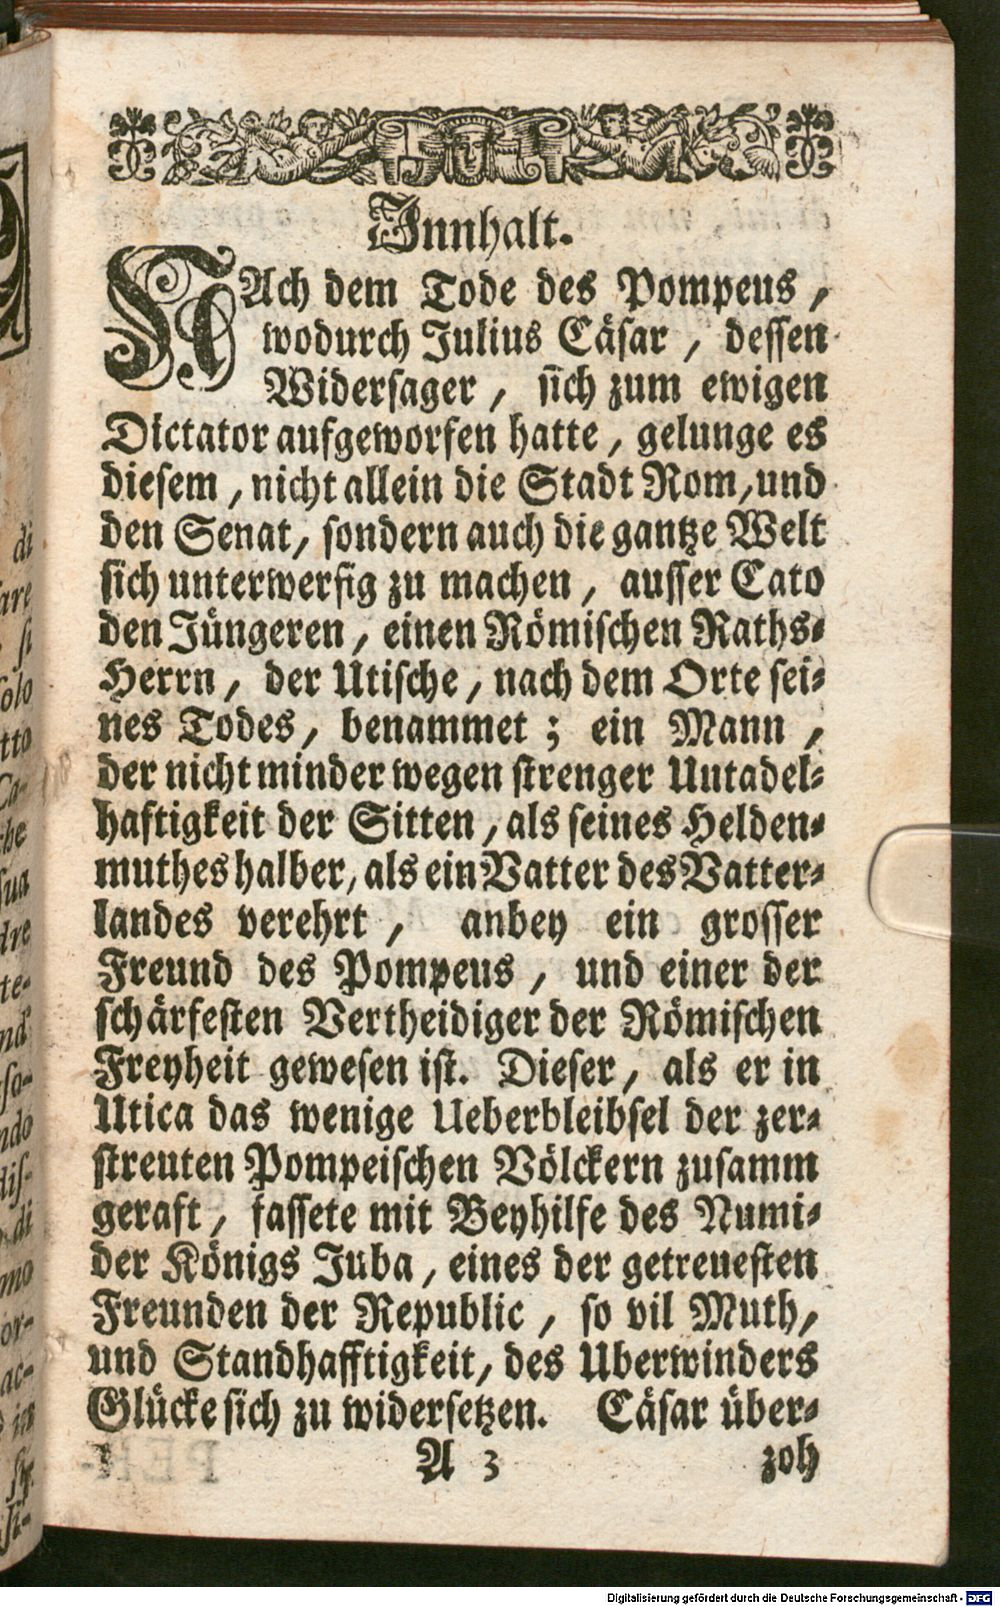 Innhalt.
NAch dem Tode des Pompeus,
wodurch Julius Cäsar, dessen
Widersager, sich zum ewigen
Dictator aufgeworfen hatte, gelunge es
diesem, nicht allein die Stadt Rom, und
den Senat, sondern auch die gantze Welt
sich unterwerfig zu machen, ausser Cato
den Jüngeren, einen Römischen Raths-
Herrn, der Utische, nach dem Orte sei-
nes Todes, benammet; ein Mann,
der nicht minder wegen strenger Untadel-
haftigkeit der Sitten, als seines Helden-
muthes halber, als ein Vatter des Vatter-
landes verehrt, anbey ein grosser
Freund des Pompeus, und einer der
schärfesten Vertheidiger der Römischen
Freyheit gewesen ist. Dieser, als er in
Utica das wenige Ueberbleibsel der zer-
streuten Pompeischen Völckern zusamm
geraft, fassete mit Beyhilfe des Numi-
der Königs Juba, eines der getreuesten
Freunden der Republic, so vil Muth,
und Standhafftigkeit, des Uberwinders
Glücke sich zu widersetzen. Cäsar über-
A 3 zoh
di
are
si
solo
tto
Ca-
che
sua
dre
te-
nd
sa-
ndo
dis-
di
mo
or-
ac-
in
Digitalisierung gefördert durch die Deutsche Forschungsgemeinschaft - DFG